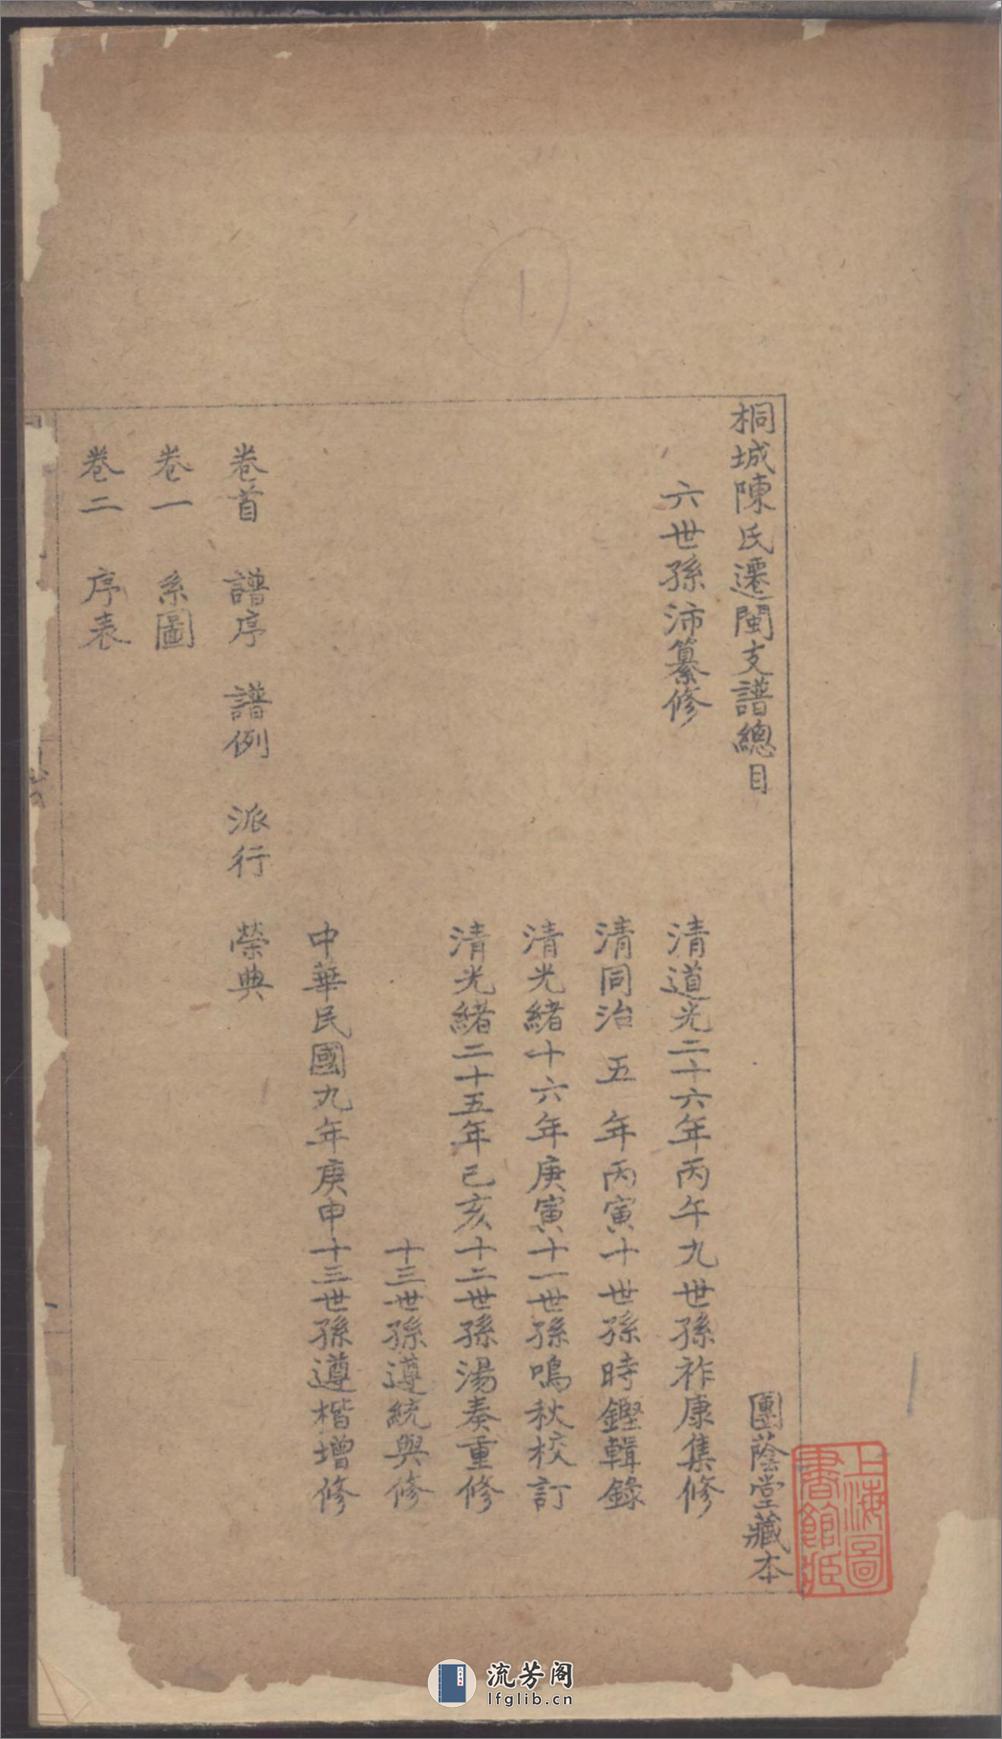 桐城陳氏遷閩支譜總目
團蔭堂藏本
六世孫沛纂修
清道光二十六年丙午九世孫祚康集修
清同治五年丙寅十世孫時鏗輯錄
清光緒十六年庚寅十一世孫鳴秋校訂
清光緒二十五年己亥十二世孫湯奏重修
十三世孫遵統與修
中華民國九年庚申十三世孫遵楷增修
卷首 譜序 譜例 派行 榮典
卷一 系圖
卷二 序表
1
上海圖書館藏
流芳阁
lfglib.cn